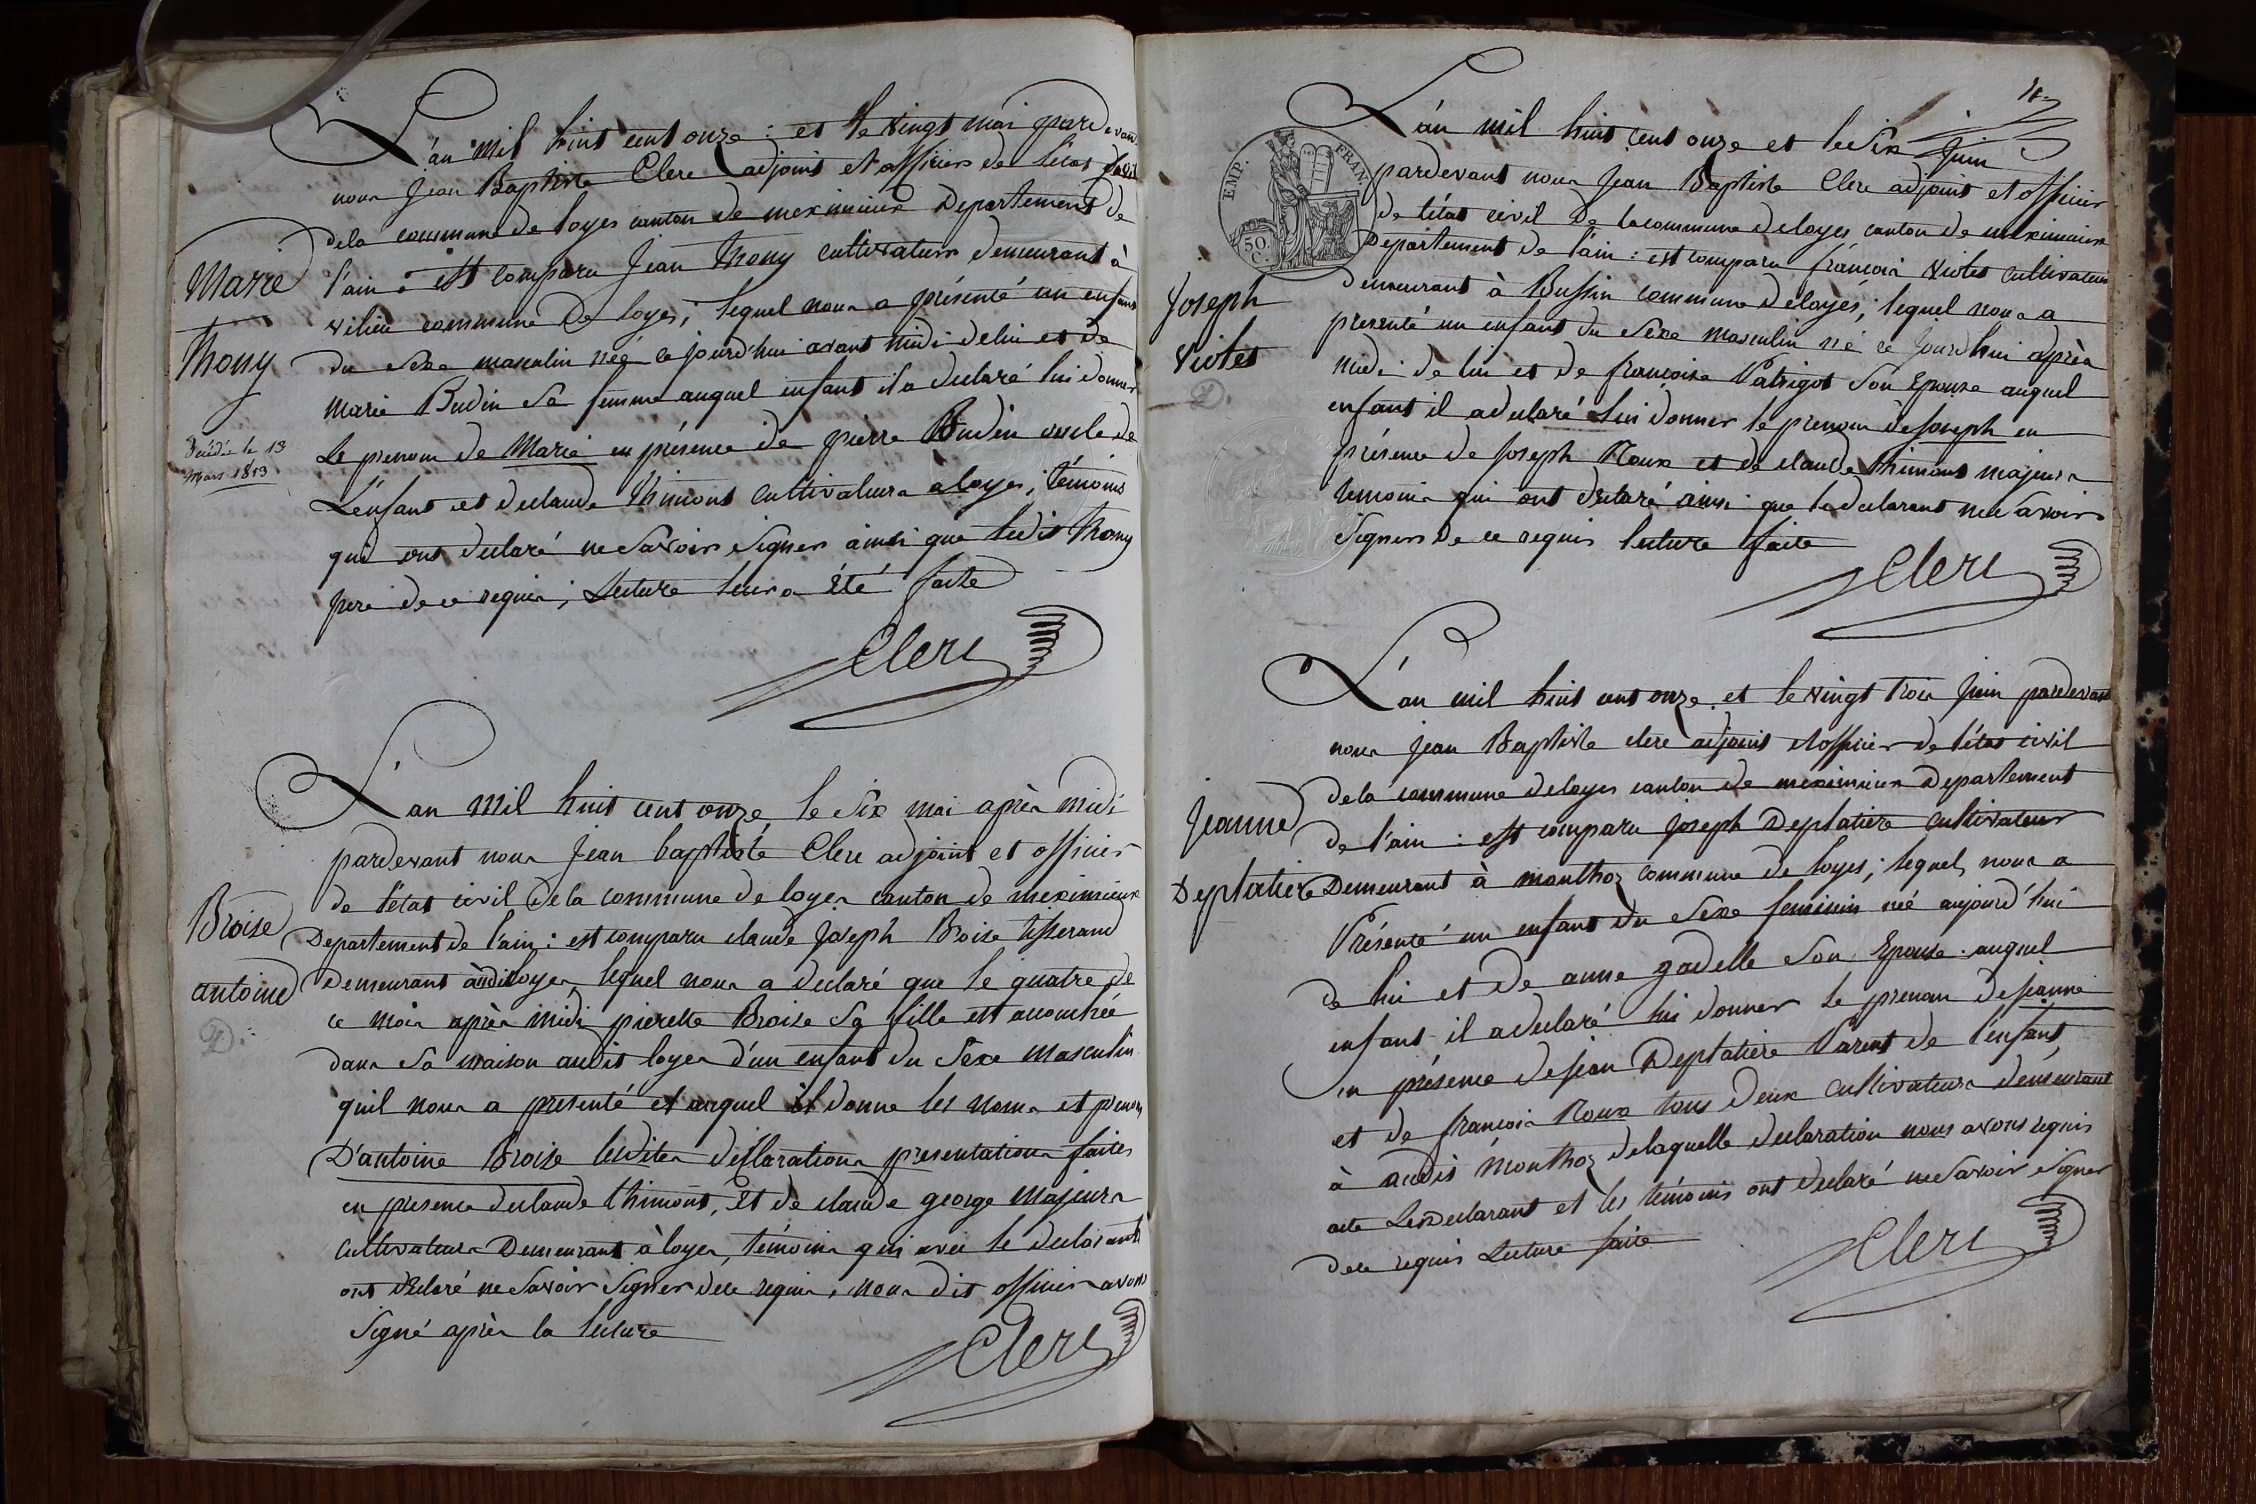 L'an mil huit cent onze : et le vingt mai pardevant
nous Jean Baptiste Clerc adjoint et officier de l'état civil
dela commune de loyes canton de meximieux Departement de
l'ain : est comparu Jean Thony cultivateur demeurant à
vilieu commune De loyes ; lequel nous a présenté un enfant
du sexe masculin néé ce jourd'hui avant midi de lui et de
marie Budin sa femme auquel enfant il a declaré lui donner
Le prenom de Marie en présence de pierre Budin oncle de
L'enfant et declaude thimont cultivateurs a loyes ; témoins
qui ont declaré ne savoir signer ainsi que ledit Thony
pere de ce requis ; Lecture leur a été faite
Clerc
Marie
Thony
Décédée le 13
Mars 1813
L'an mil huit cent onze le six mai après midi
pardevant nous Jean baptiste Clerc adjoint et officier
de l'état civil dela commune de loyes canton de meximieux
Departement de l'ain : est comparu claude Joseph Broise tisserand
Demeurant audit loyes lequel nous a declaré que le quatre de
ce mois après midi pierette Broise sa fille est accouchée
dans sa maison audit loyes d'un enfant du sexe masculin
quil nous a presenté et auquel il donne les noms et prenoms
D'antoine Broise lesdites déclarations presentations faites
en presence declaude thimont, et de claude george majeurs
cultivateurs Demeurant à loyes, témoins qui avec le declarant
ont declaré ne savoir signer dece requis, nous dit officier avons
signé après la lecture
Clerc
Broise
antoine
D.
18
L'an mil huit cent onze et le six Juin
pardevant nous Jean Baptiste Clerc adjoint et officier
de l'état civil de la commune de loyes canton de meximieux
Departement de l'ain : est comparu françois violet cultivateur
demeurant à Bussin commune de loyes ; lequel nous a
presenté un enfant du sexe masculin né ce jourd'hui après
midi de lui et de françoise Patrigot son Epouse auquel
enfant il a declaré lui donner le prenom de Joseph en
présence de Joseph Roux et de claude thimont majeurs
temoins qui ont declaré ainsi que le declarant ne savoir
signer de ce requis lecture faite
Clerc
EMP. FRAN.
50 C.
Joseph
violet
D.
L'an mil huit cent onze et le vingt trois Juin pardevant
nous Jean Baptiste clerc adjoint et officier de l'état civil
dela commune de loyes canton de meximieux Departement
de l'ain : est comparu Joseph Deplatière cultivateur
Demeurant à monthoz commune de loyes ; lequel nous a
Présenté un enfant du sexe feminin né aujourd'hui
de lui et de anne gadelle son Epouse auquel
enfant il a declaré lui donner le prenom de Jeanne
en présence de Jean Deplatière Parent de l'enfant
et de françois Roux tous deux cultivateurs demeurant
à audit Monthoz delaquelle declaration nous avons requis
acte Le declarant et les témoins ont declaré ne savoir signer
dece requis Lecture faite
Clerc
Jeanne
Deplatière